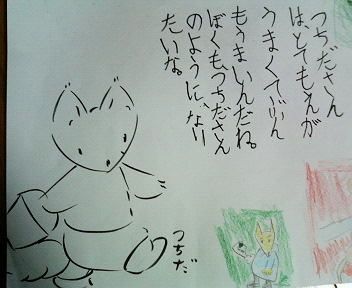 つちださん
は、とてもえが
うまくて、じぶん
もうまいんだね。
ぼくもつちださん
のように、なり
たいな。
つちだ